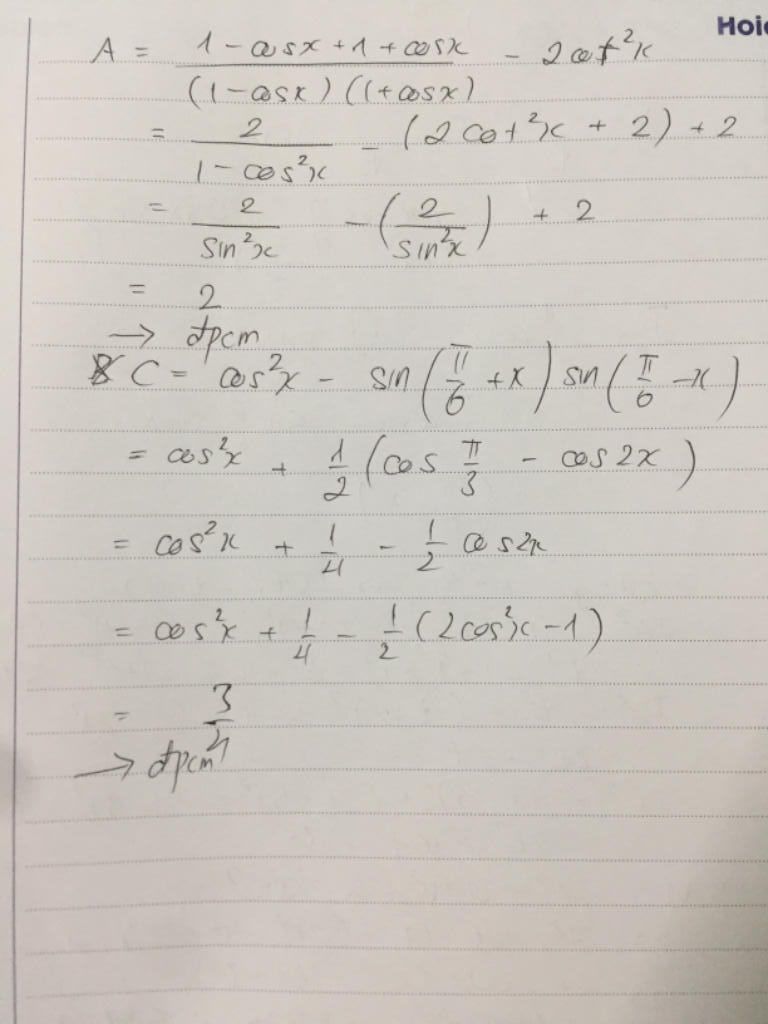 Hoic
A = (1 - cosx + 1 + cosx) / ((1 - cosx)(1 + cosx)) - 2cot²x
= 2 / (1 - cos²x) - (2cot²x + 2) + 2
= 2 / sin²x - (2 / sin²x) + 2
= 2
→ đpcm
C = cos²x - sin(π/6 + x) sin(π/6 - x)
= cos²x + 1/2 (cos π/3 - cos2x)
= cos²x + 1/4 - 1/2 cos2x
= cos²x + 1/4 - 1/2 (2cos²x - 1)
= 3/4
→ đpcm